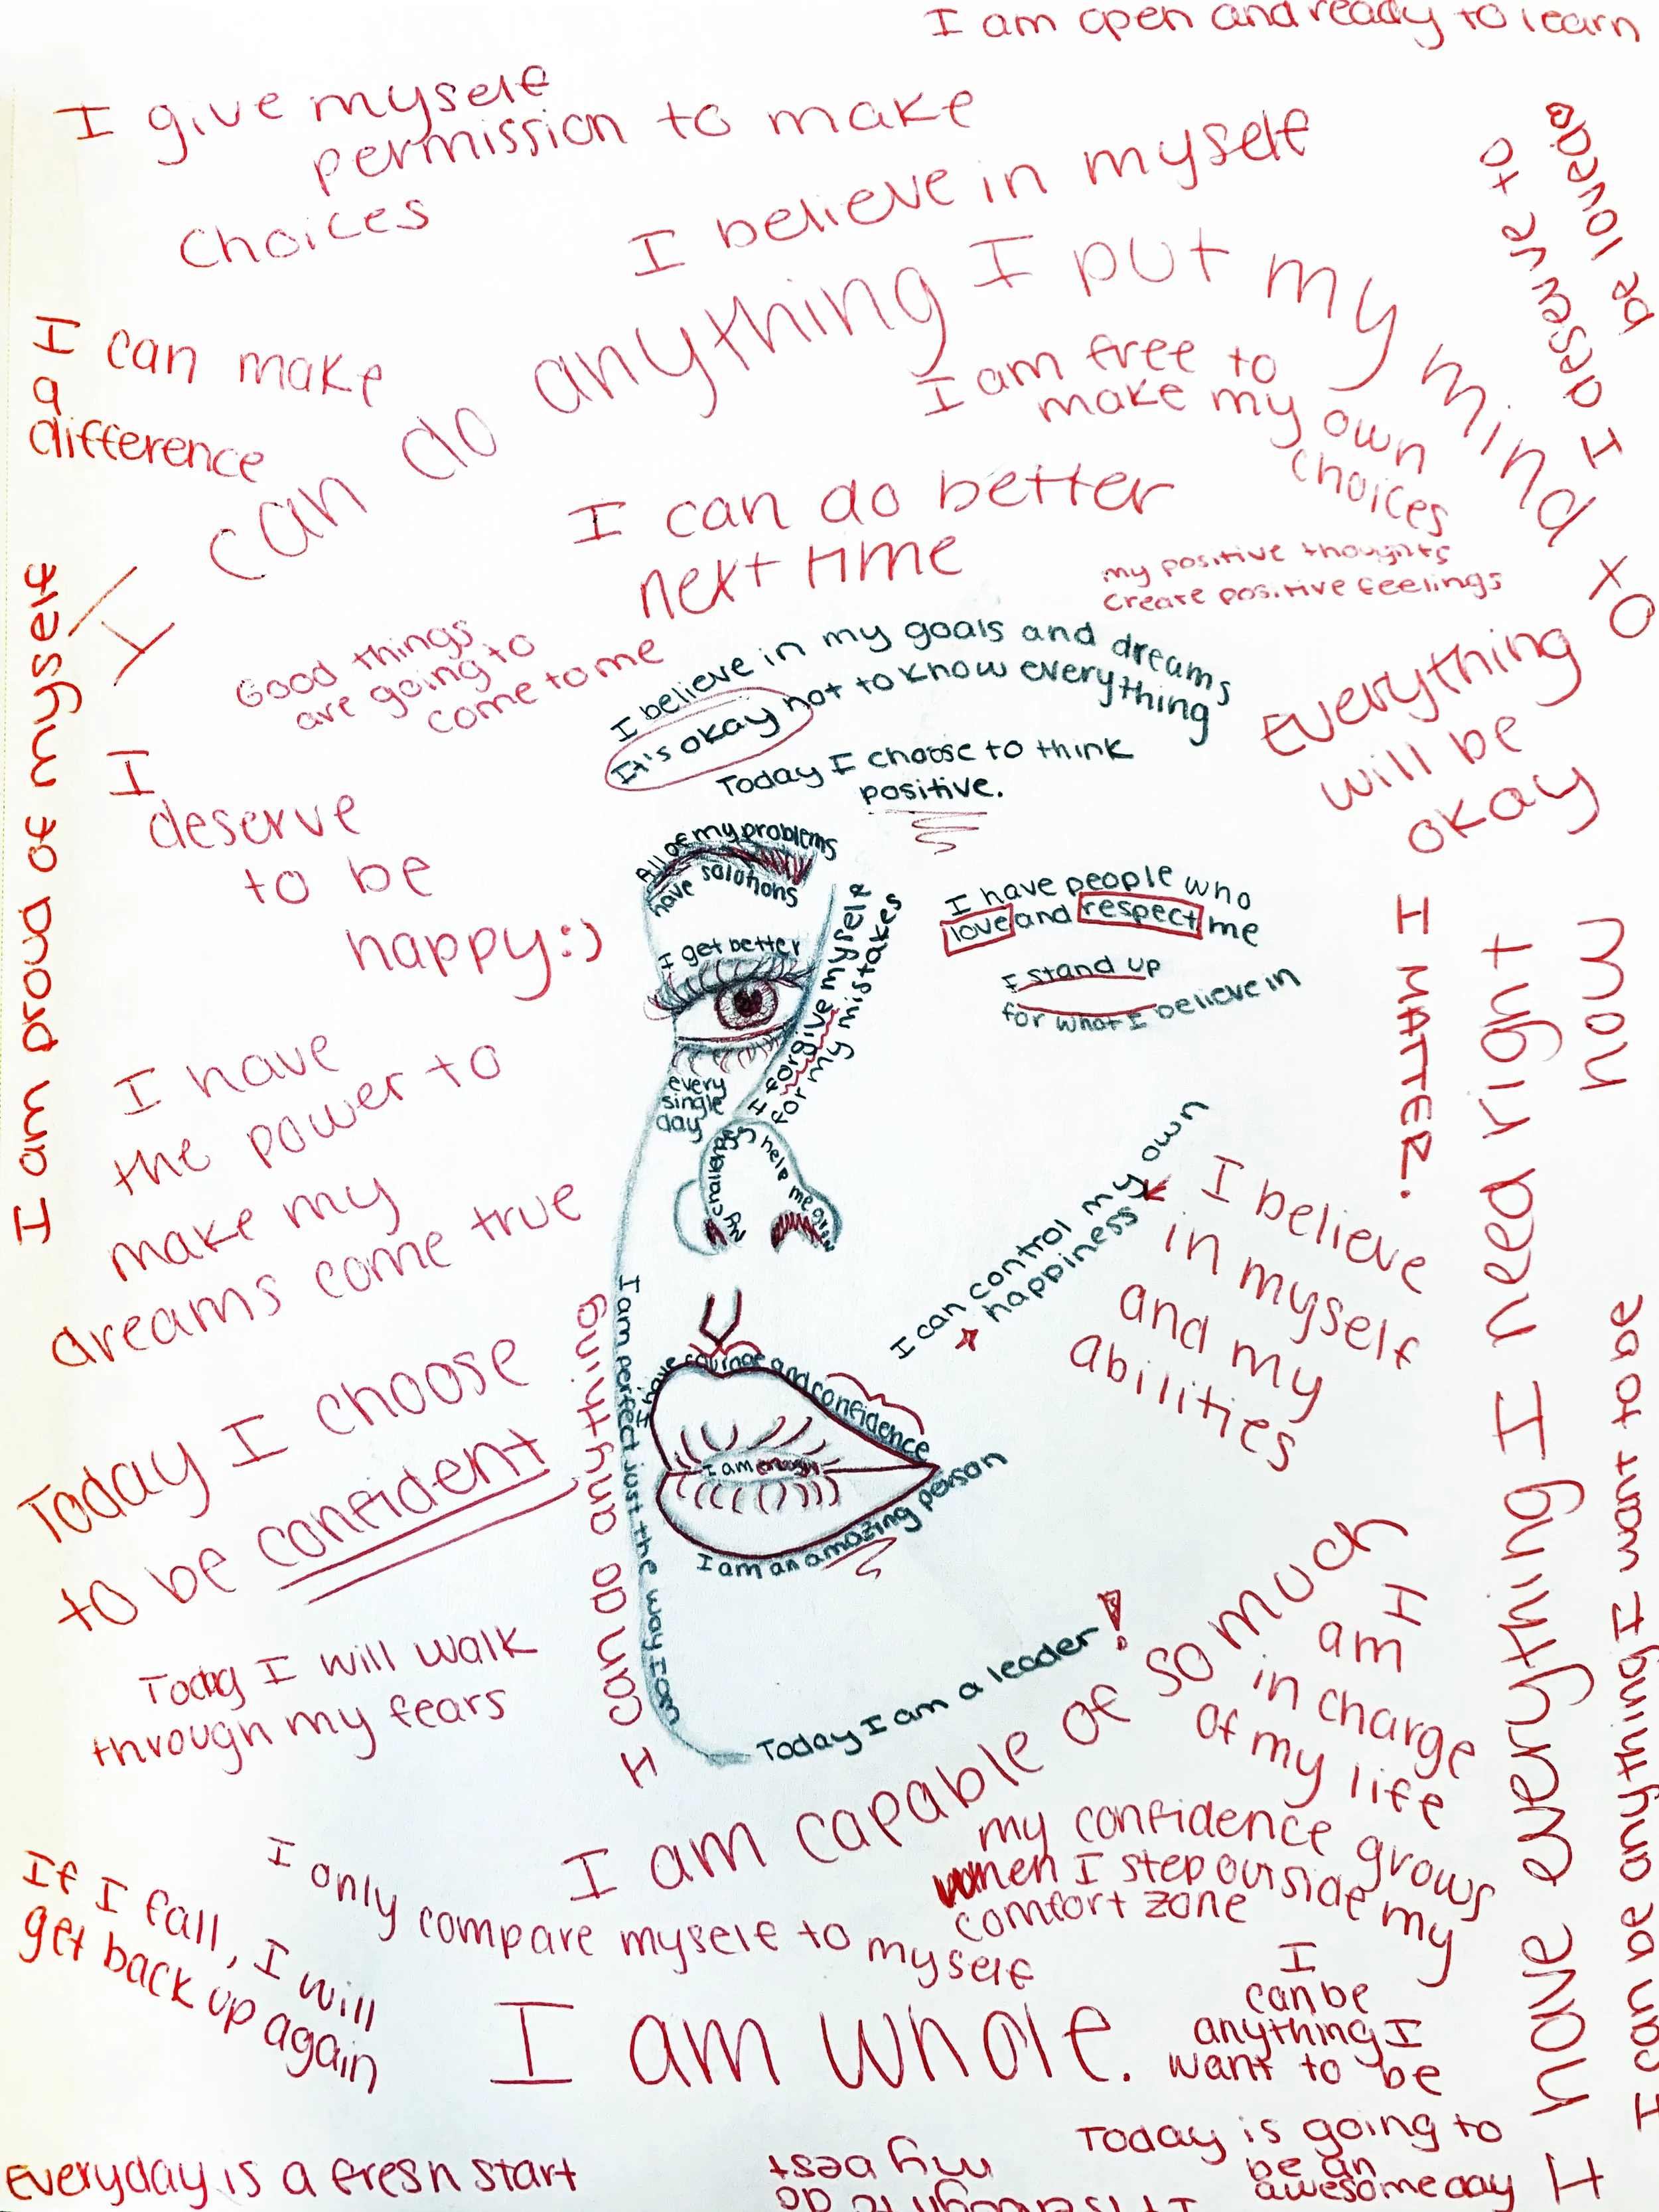 I am open and ready to learn
I give myself
permission to make
choices
I believe in myself
I deserve to
be loved
I can do anything I put my mind to
I can make
a
difference
I am free to
make my own
choices
I can do better
next time
my positive thoughts
create positive feelings
I am proud of myself
Good things
are going to
come to me
I believe in my goals and dreams
It's okay not to know everything
Today I choose to think
positive.
Everything
will be
okay
I
deserve
to be
happy:)
All of my problems
have solutions
I get better
every
single
day
I forgive myself
for my mistakes
I have people who
love and respect me
I stand up
for what I believe in
I MATTER.
I have everything I need right
now
I have
the power to
make my
dreams come true
My challenges help me grow
I can control my own
happiness
I believe
in myself
and my
abilities
Today I choose
to be confident
I can do anything
I am perfect just the way I am
I have courage and confidence
I am enough
I am an amazing person
I can be anything I want to be
Today I will walk
through my fears
Today I am a leader!
I am capable of so much
I
am
in charge
of my life
my confidence grows
when I step outside my
comfort zone
If I fall, I will
get back up again
I only compare myself to myself
I am whole.
I
can be
anything I
want to be
Everyday is a fresh start
It is enough to do
my best
Today is going to
be an
awesome day